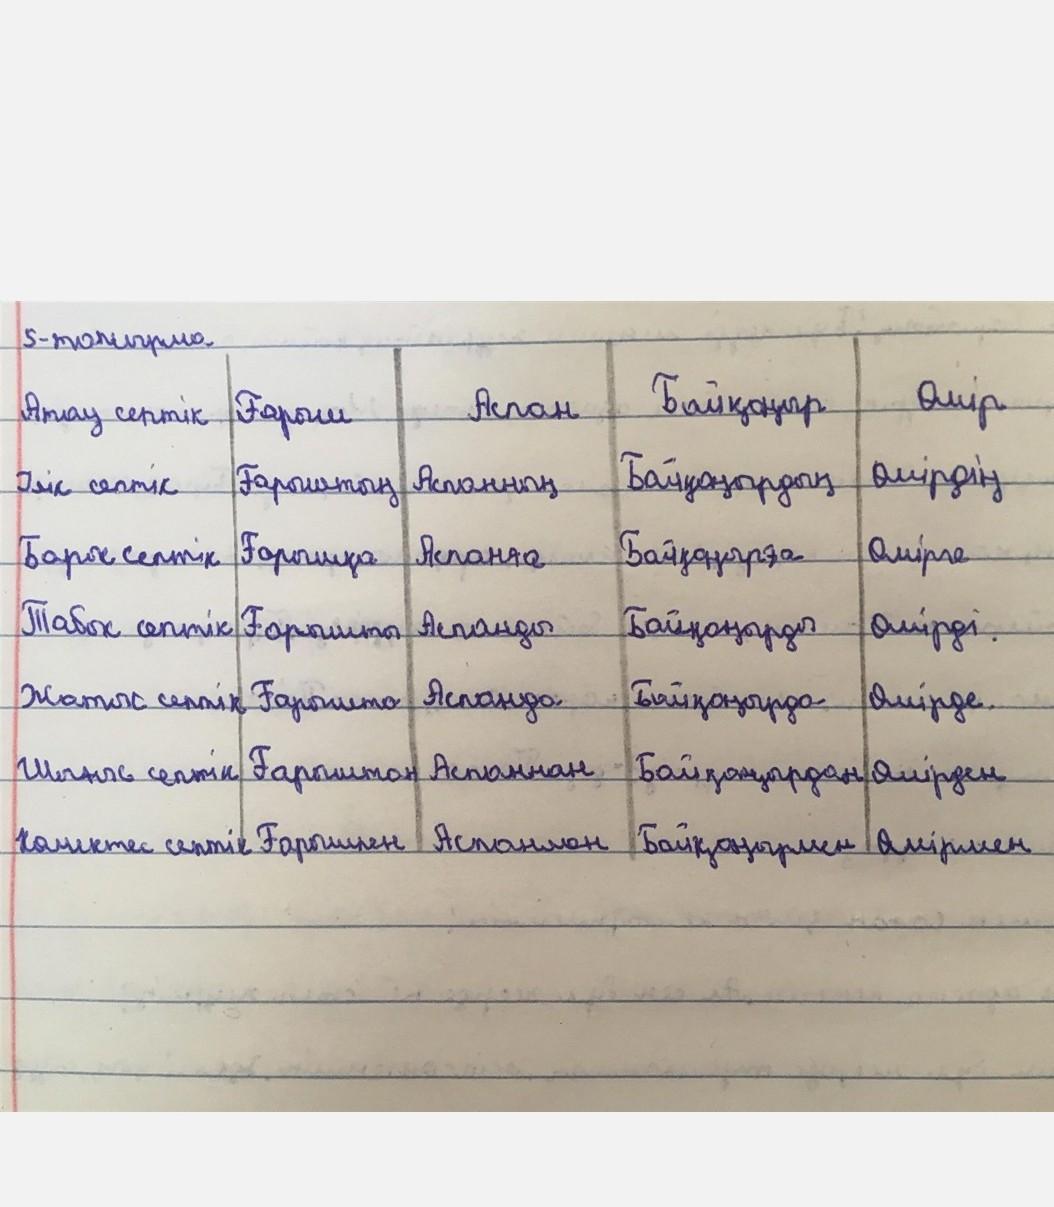 5-тапсырма.
Атау септік Ғарыш Аспан Байқоңыр Өмір
Ілік септік Ғарыштың Аспанның Байқоңырдың Өмірдің
Барыс септік Ғарышқа Аспанға Байқоңырға Өмірге
Табыс септік Ғарышты Аспанды Байқоңырды Өмірді.
Жатыс септік Ғарышта Аспанда Байқоңырда Өмірде.
Шығыс септік Ғарыштан Аспаннан Байқоңырдан Өмірден
Көмектес септік Ғарышпен Аспанман Байқоңырмен Өмірмен